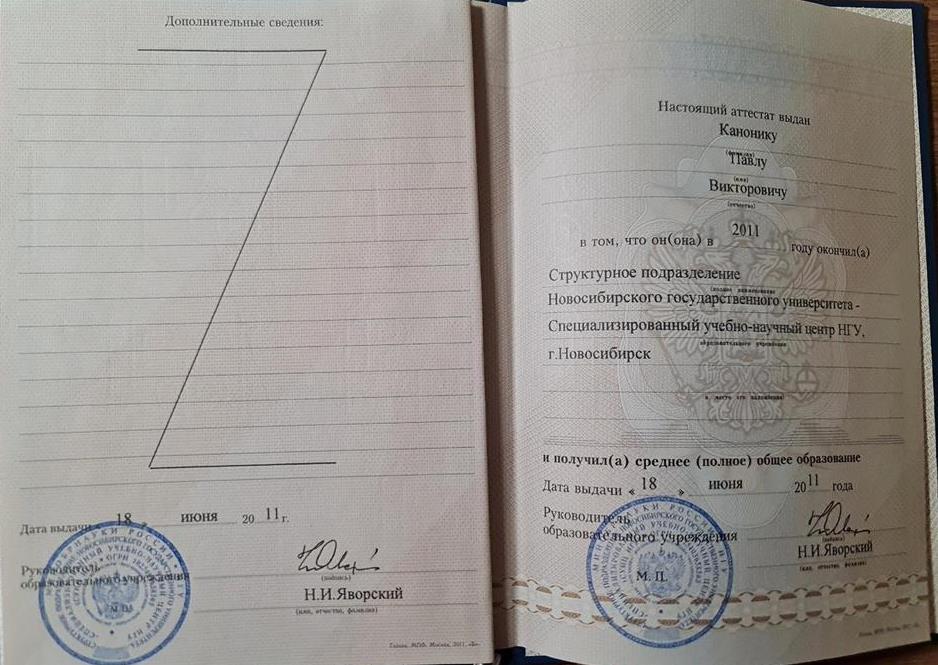 Дополнительные сведения:
Дата выдачи « 18 » июня 20 11 г.
Руководитель
образовательного учреждения
(подпись)
Н.И.Яворский
(имя, отчество, фамилия)
М.П.
Гознак, МПФ, Москва, 2011, «Б».
Настоящий аттестат выдан
Канонику
(фамилия)
Павлу
(имя)
Викторовичу
(отчество)
в том, что он(она) в 2011 году окончил(а)
Структурное подразделение
(полное наименование
Новосибирского государственного университета -
Специализированный учебно-научный центр НГУ,
образовательного учреждения
г.Новосибирск
и место его нахождения)
и получил(а) среднее (полное) общее образование
Дата выдачи « 18 » июня 20 11 года
Руководитель
образовательного учреждения
(подпись)
Н.И.Яворский
(имя, отчество, фамилия)
М. П.